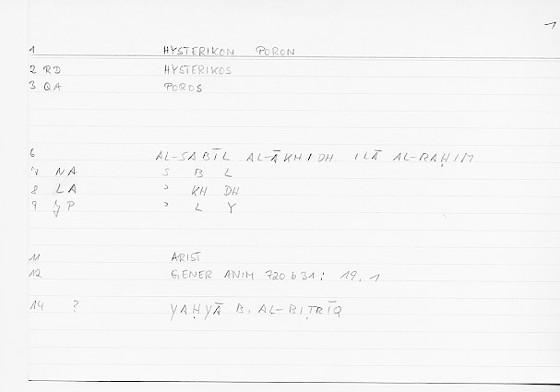 1
1 HYSTERIKON PORON
2 RD HYSTERIKOS
3 QA POROS
6 AL-SABĪL AL-ĀKHIDH ILĀ AL-RAḤIM
7 NA S B L
8 LA ʾ KH DH
9 P ʾ L Y
11 ARIST
12 GENER ANIM 720 b 31: 19.1
14 ? YAḤYĀ B. AL-BIṬRĪQ